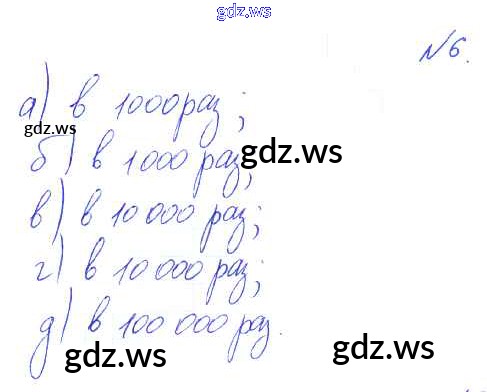 gdz.ws
№6.
а) в 1000 раз;
gdz.ws
б) в 1000 раз;
gdz.ws
в) в 10 000 раз;
г) в 10 000 раз;
д) в 100 000 раз.
gdz.ws
gdz.ws